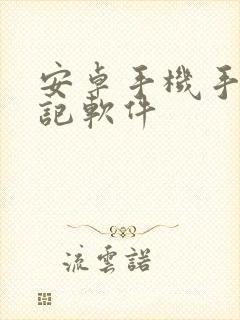 安卓手機手
記軟件
流雲諾